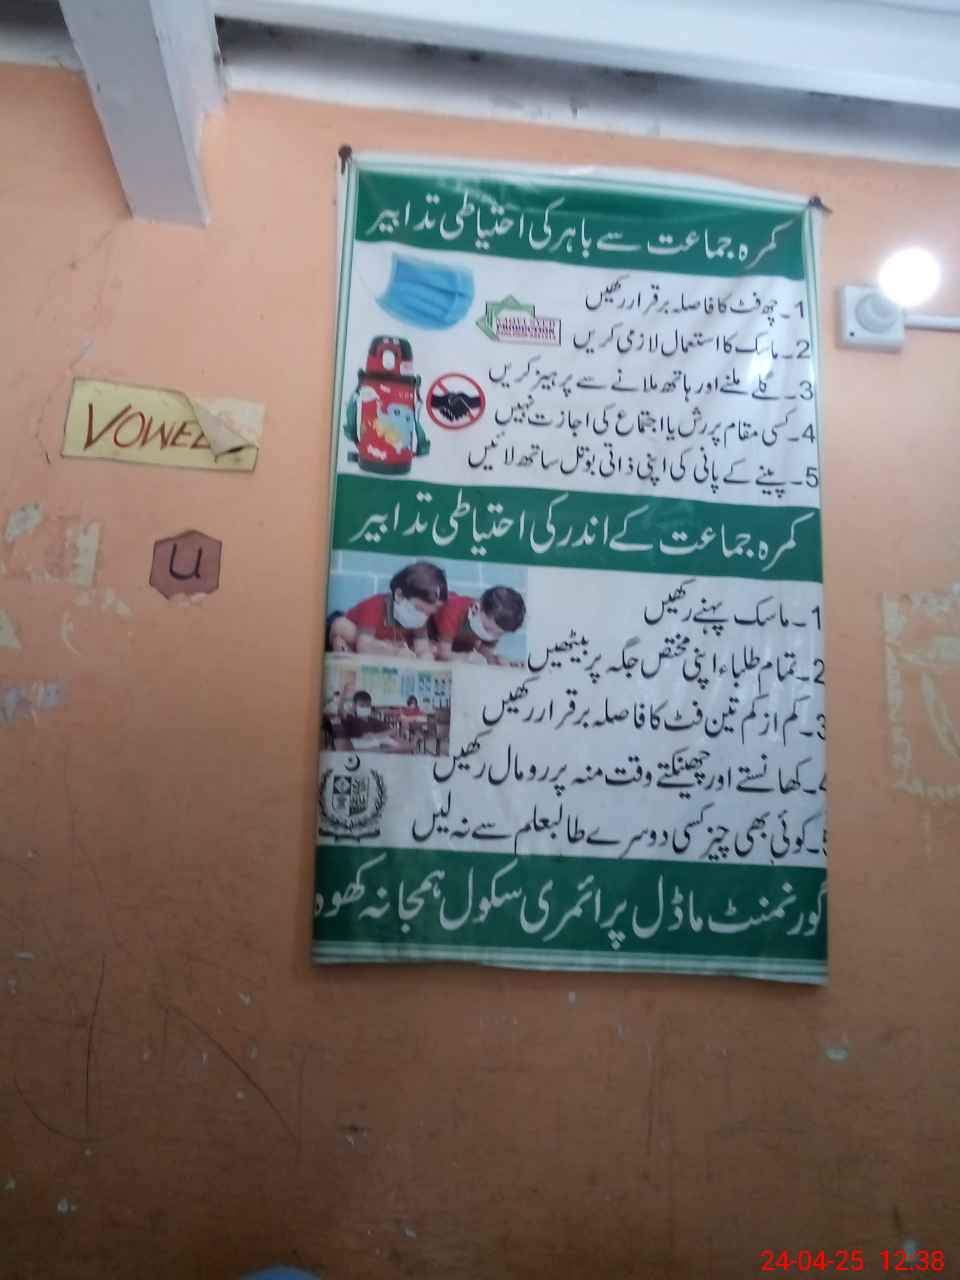 کمرہ جماعت سے باہر کی احتیاطی تدابیر
1۔چھ فٹ کا فاصلہ برقرار رکھیں
2۔ماسک کا استعمال لازمی کریں
3۔گلے ملنے اور ہاتھ ملانے سے پرہیز کریں
4۔کسی مقام پر رش یا اجتماع کی اجازت نہیں
5۔پینے کے پانی کی اپنی ذاتی بوتل ساتھ لائیں
PRODUCTION
کمرہ جماعت کے اندر کی احتیاطی تدابیر
1۔ماسک پہنے رکھیں
2۔تمام طلباء اپنی مختص جگہ پر بیٹھیں
3۔کم از کم تین فٹ کا فاصلہ برقرار رکھیں
4۔کھانستے اور چھینکتے وقت منہ پر رومال رکھیں
5۔کوئی بھی چیز کسی دوسرے طالبعلم سے نہ لیں
گورنمنٹ ماڈل پرائمری سکول ہمجانہ کھوہ
VOWEL
u
24-04-25 12.38